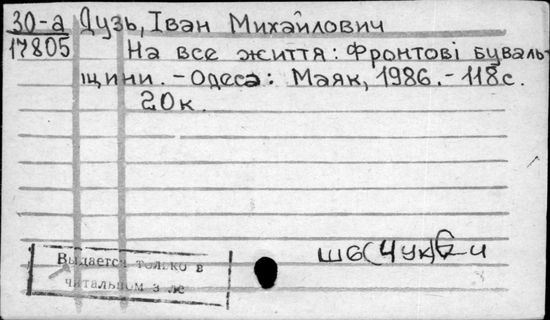 30-а Дузь, Іван Михайлович
17805 На все життя: Фронтові буваль-
щини. – Одеса: Маяк, 1986. – 118 с.
20к.
Выдается только в
читальном з ле
Ш6(4Ук)